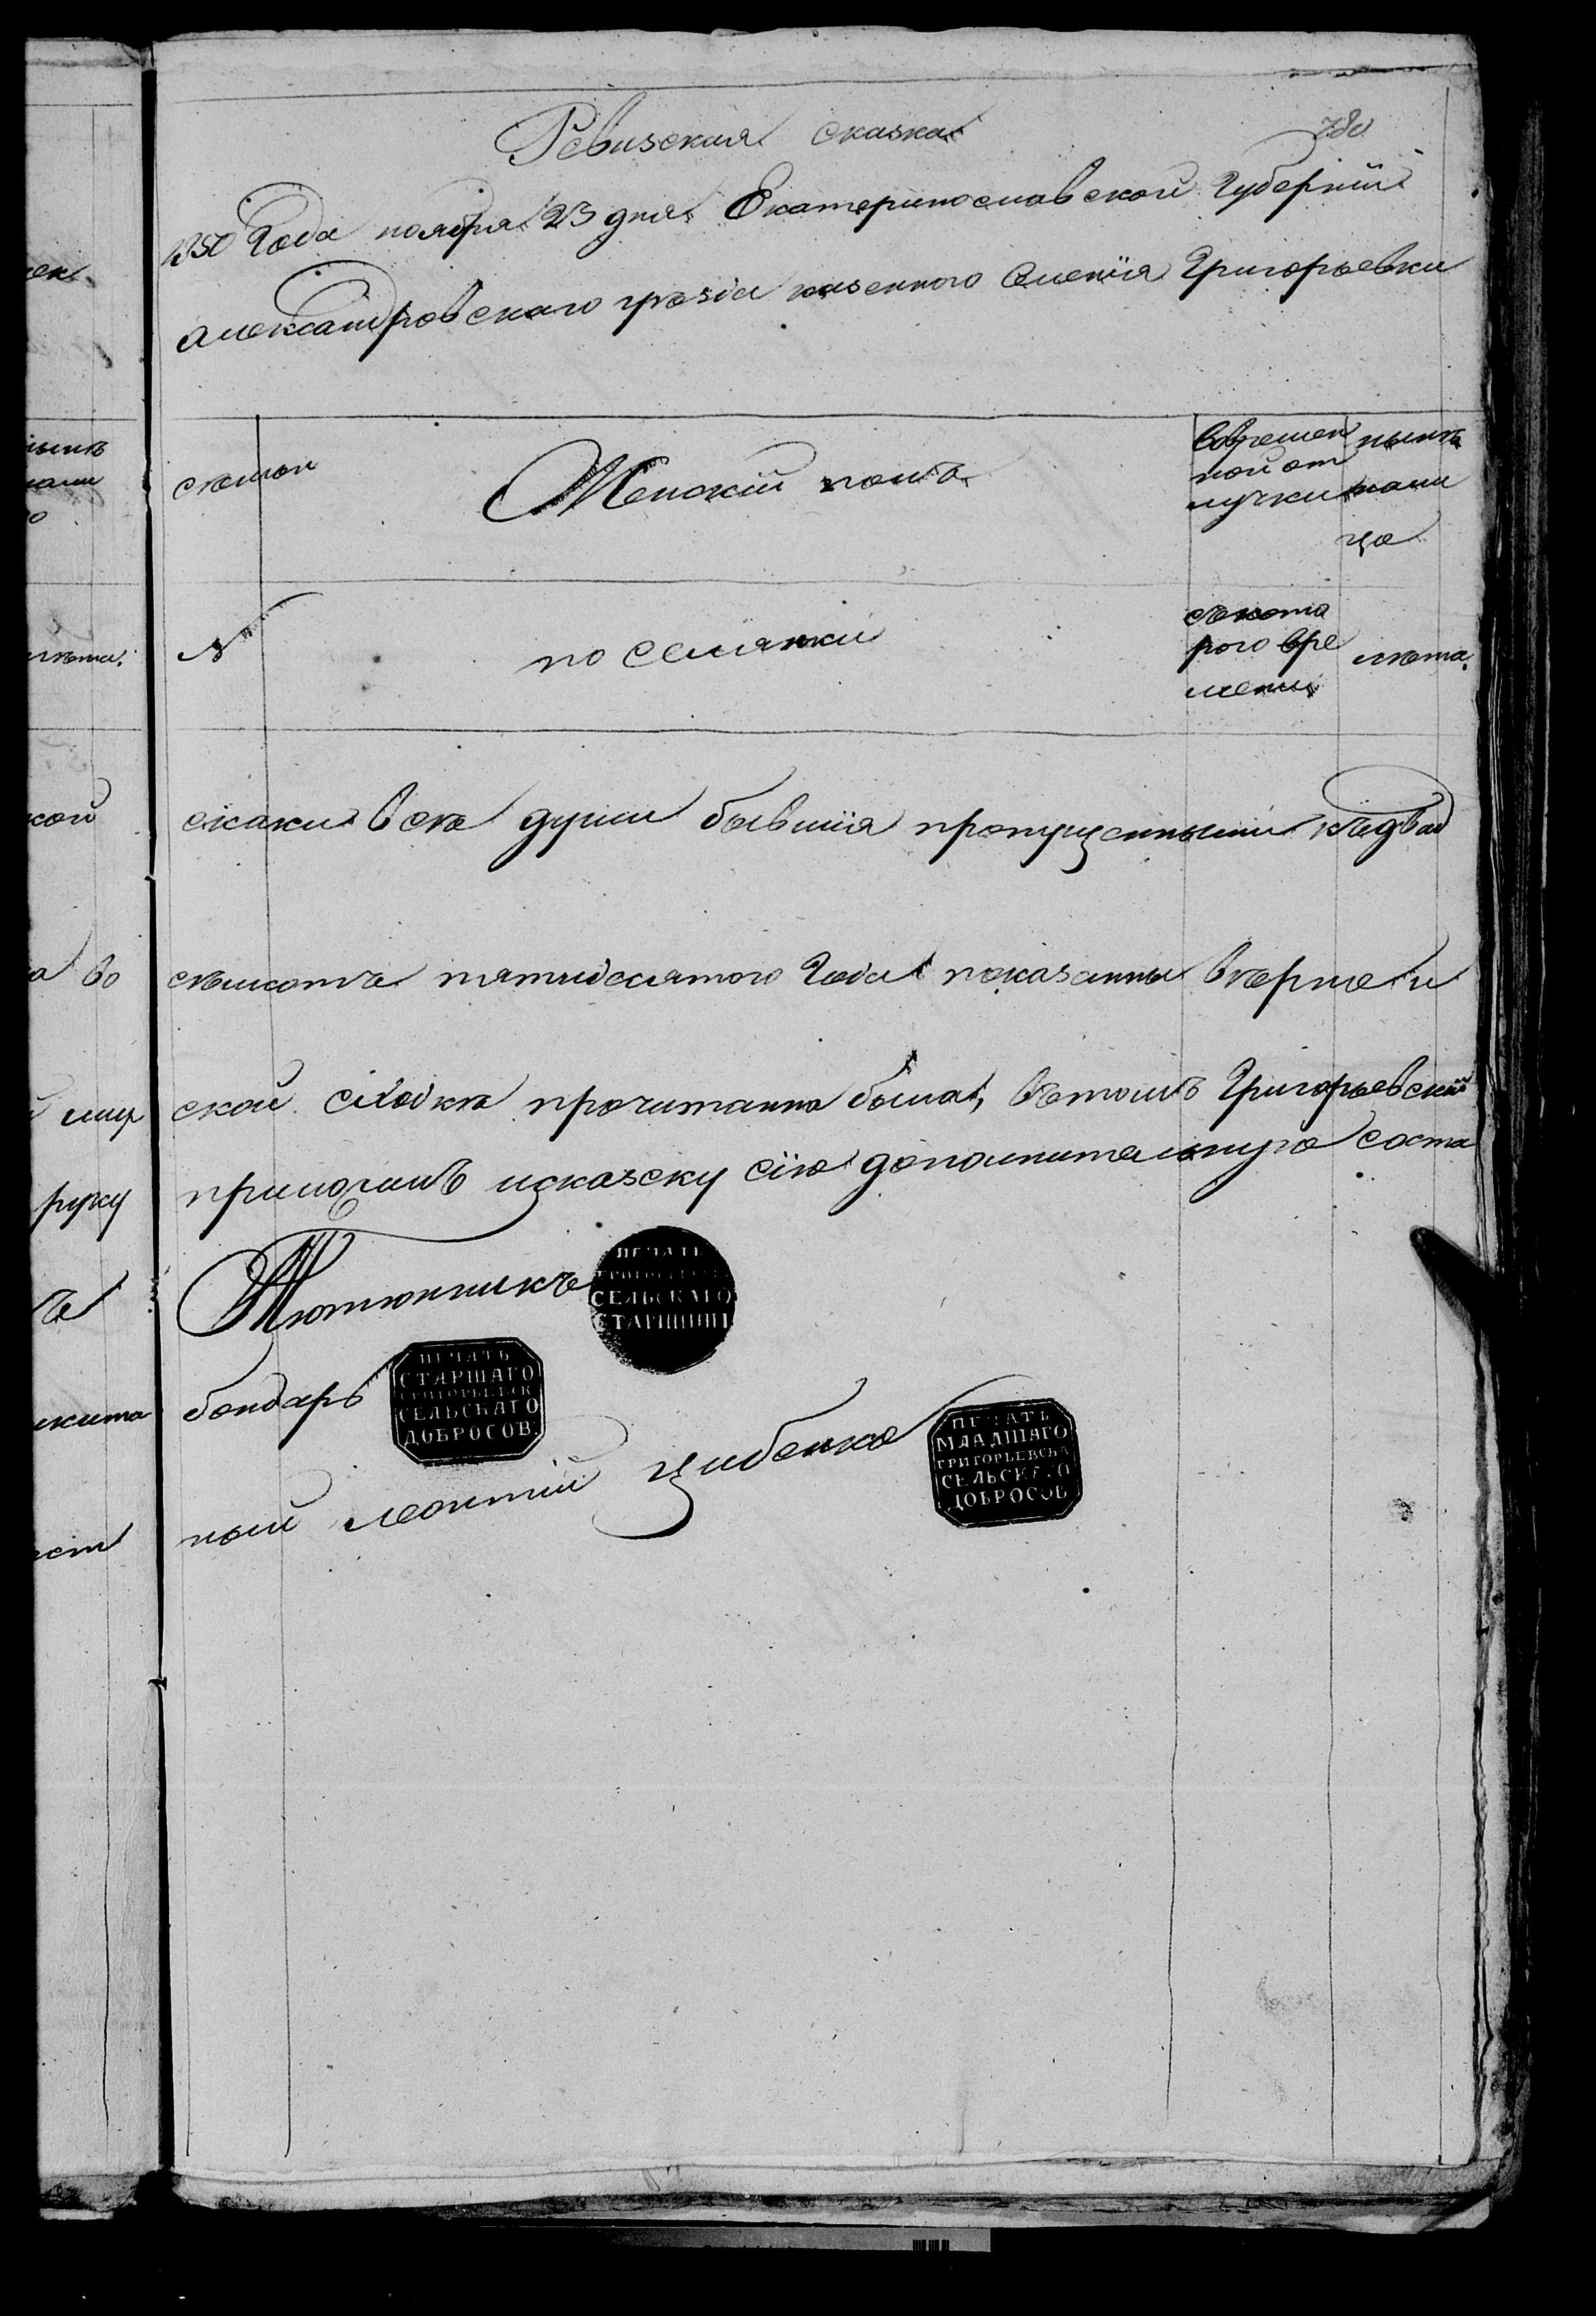 780
Ревизская сказка
1850 Года ноября 23 дня Екатеринославской Губернии
Александровского уѣзда казенного Селенія Григорьевки
съмьи
Женскій полъ
вовремен
ной от
лучки
нынѣ
нали
цо
№
поселянки
съкото
рого вре
мени
лѣта.
скаки всѣ души бывшія пропущенными къдвад
съмсотъ пятидесятого Года показанны вѣрно и
ской сходкѣ прочитанно было, вътомъ Григорьевскій
приложилъ исказску сію дополнительную соста
Тютюнникъ
ПЕЧАТЬ
СЕЛЬСКАГО
СТАРШИНЫ
бондарь
ПЕЧАТЬ
СТАРШАГО
ГРИГОРЬЕВСК
СЕЛЬСКАГО
ДОБРОСОВ.
ный леонтій цибенко
ПЕЧАТЬ
МЛАДШАГО
ГРИГОРЬЕВСКА
СЕЛЬСКАГО
ДОБРОСОВ
кой
а во
мир
руку
ъ